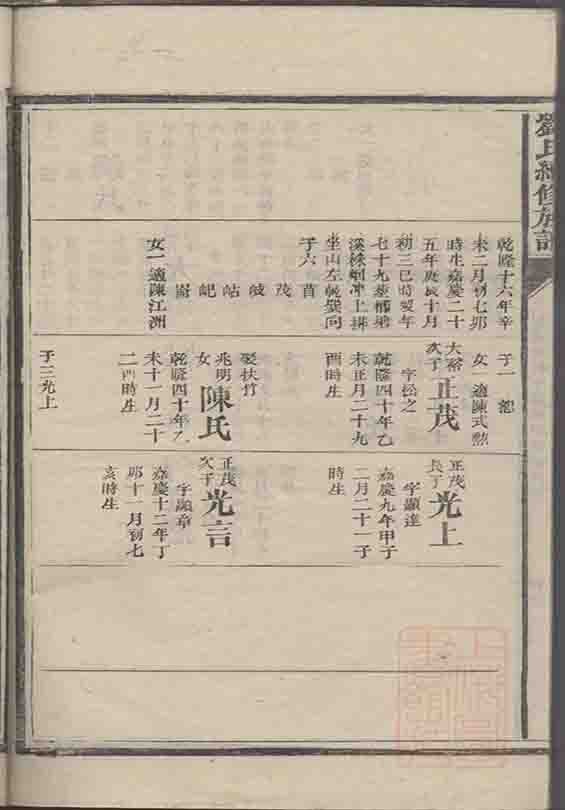 劉氏續修族譜
乾隆十六年辛
未二月初七卯
時生嘉慶二十
五年庚辰十月
初三巳時歿年
七十九葬
坐山左乾巽向
子六 苜 茂
岐 岵 屺
女一適陳江洲
子一
女一適陳式
大裕
次子
正茂
字松之
乾隆四十年乙
未正月二十九
酉時生
娶扶竹
兆明
女
陳氏
乾隆四十年乙
未十一月二十
二酉時生
子三光上
正茂
長子
光上
字顯達
嘉慶九年甲子
二月二十一子
時生
正茂
次子
光言
字顯章
嘉慶十二年丁
卯十一月初七
亥時生